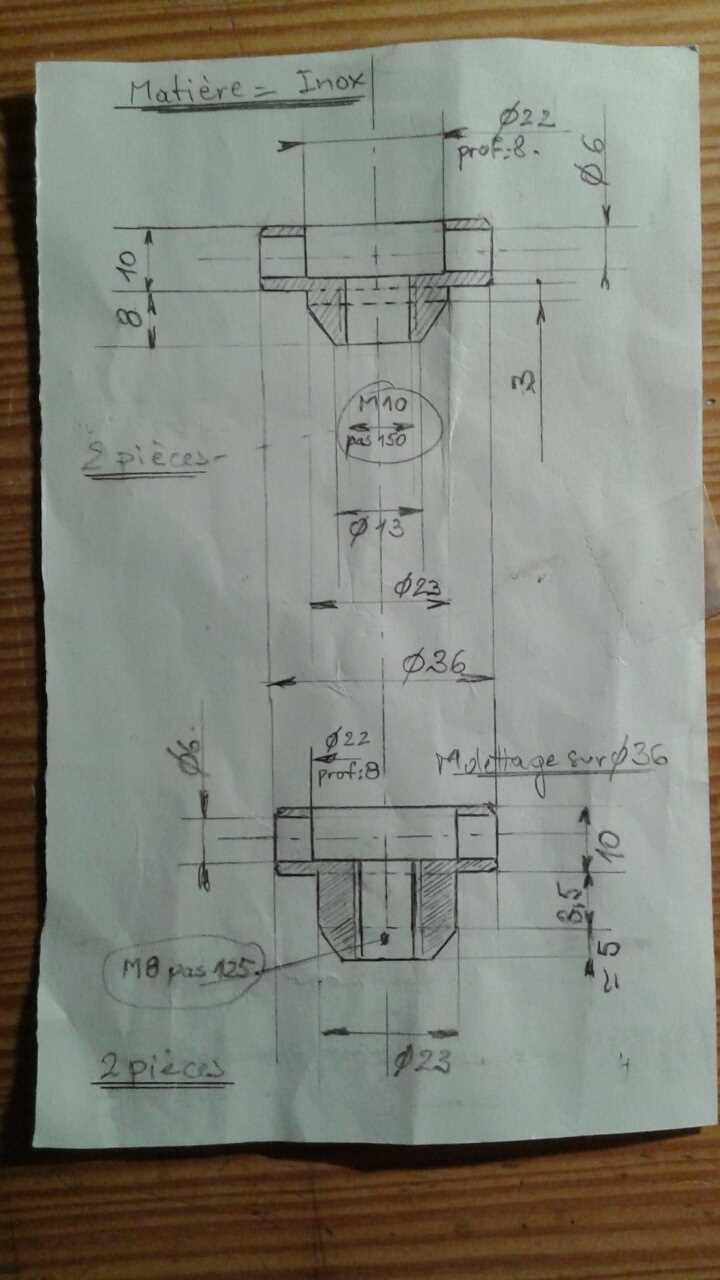 Matière = Inox
Ø22
prof: 8.
Ø6
10
8
3
M10
pas 150
2 pièces-
Ø13
Ø23
Ø36
Ø6.
Ø22
prof: 8
Molettage sur Ø36
10
8,5
≈ 5
M8 pas 125.
Ø23
2 pièces